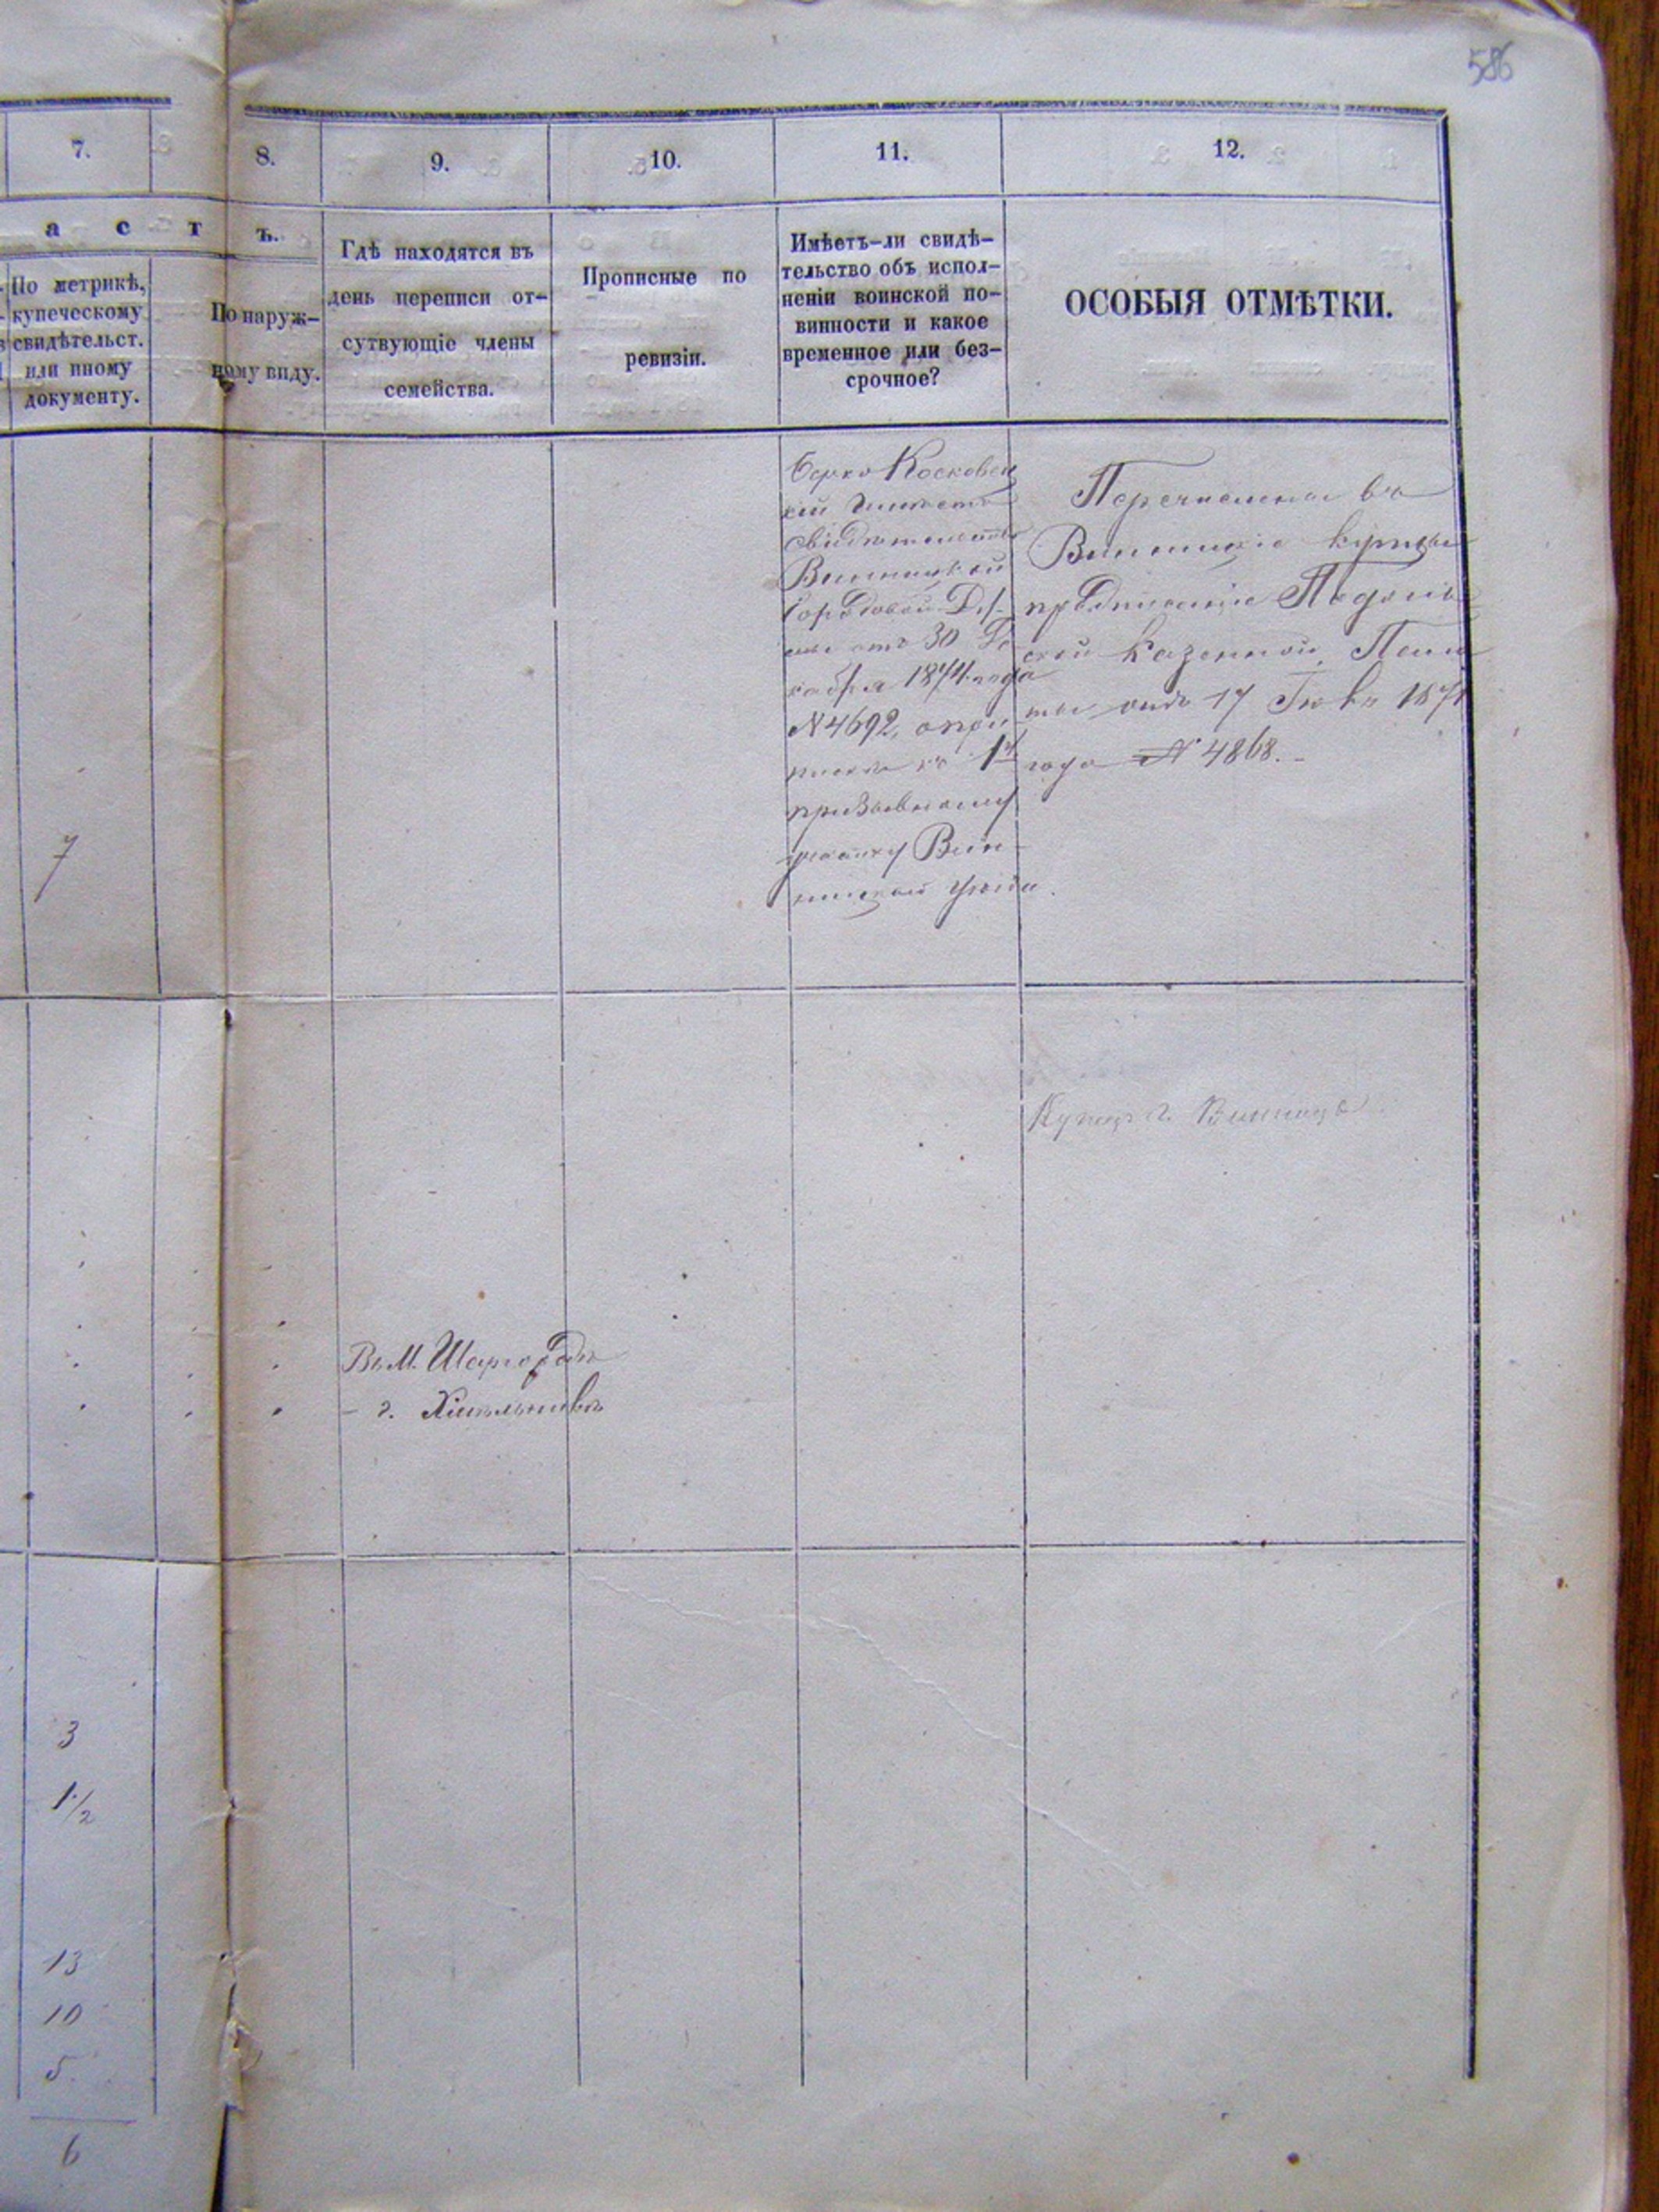 586
7.
8.
9.
10.
11.
12.
а с т ъ.
По метрикѣ,
купеческому
свидѣтельст.
или иному
документу.
По наруж-
ному виду.
Гдѣ находятся въ
день переписи от-
сутвующіе члены
семейства.
Прописные по
ревизіи.
Имѣетъ-ли свидѣ-
тельство объ испол-
неніи воинской по-
винности и какое
временное или без-
срочное?
ОСОБЫЯ ОТМѢТКИ.
7
Берко
имѣетъ
свидѣтельство
Винницкой
Городовой Ду-
мы отъ 30 Де
кабря 1874 года
№ 4692, о при
пискѣ къ 1му
призывному
участку Вин-
ницкаго уѣзда.
Перечислены въ
Винницкіе купцы
Подоль
ской Казенной Пала
ты отъ 17 1871
года № 4868.
Купецъ г. Винницы
Въ м. Шаргородѣ
- г. Хмѣльникѣ
3
1/2
13
10
5
6